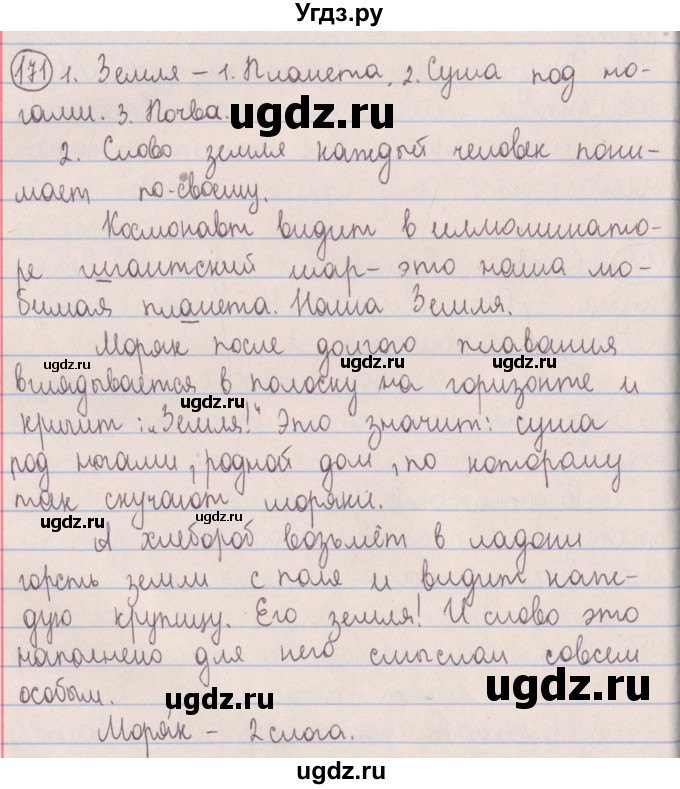 Угдз.ру
171 1. Земля – 1. Планета, 2. Суша под но-
гами. 3. Почва.
ugdz.ru
2. Слово земля каждый человек пони-
мает по-своему.
Космонавт видит в иллюминато-
ре гигантский шар- это наша лю-
бимая планета. Наша Земля.
Моряк после долгого плавания
ugdz.ru ugdz.ru
вглядывается в полоску на горизонте и
ugdz.ru
кричит: „Земля!" Это значит: суша
ugdz.ru
под ногами, родной дом, по которому
так скучают моряки.
ugdz.ru ugdz.ru
А хлебороб возьмёт в ладони
горсть земли с поля и видит каж-
дую крупицу. Его земля! И слово это
наполнено для него смыслом совсем
особым.
ugdz.ru ugdz.ru
Моря́к – 2 слога.
ugdz.ru